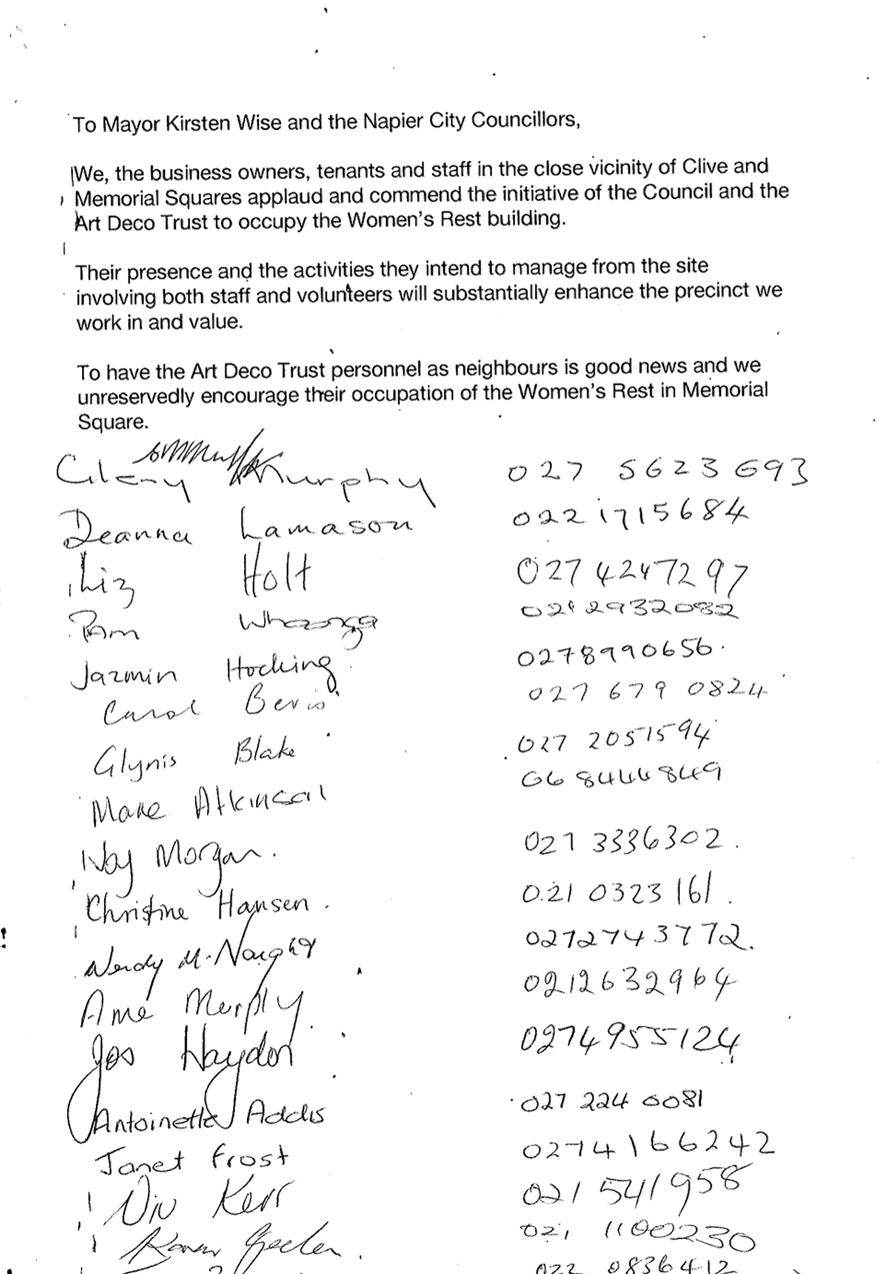 To Mayor Kirsten Wise and the Napier City Councillors,
We, the business owners, tenants and staff in the close vicinity of Clive and
Memorial Squares applaud and commend the initiative of the Council and the
Art Deco Trust to occupy the Women's Rest building.
Their presence and the activities they intend to manage from the site
involving both staff and volunteers will substantially enhance the precinct we
work in and value.
To have the Art Deco Trust personnel as neighbours is good news and we
unreservedly encourage their occupation of the Women's Rest in Memorial
Square.
Murphy 027 5623 693
Deanna Lamason 022 1715684
Liz Holt 027 4247297
Pam
Jazmin Hocking 0278990656.
Carol 027 679 0824
Glynis Blake 027 2051594
06 8444849
Morgan. 027 3336302.
Christine Hansen. 021 0323 161.
Wendy 0272743772.
Murphy 0212632964
Haydon 0274955124
Antoinette Addis 027 224 0081
Janet Frost 0274166242
Viv Kerr 021 541958
021 1100230
022 0836412